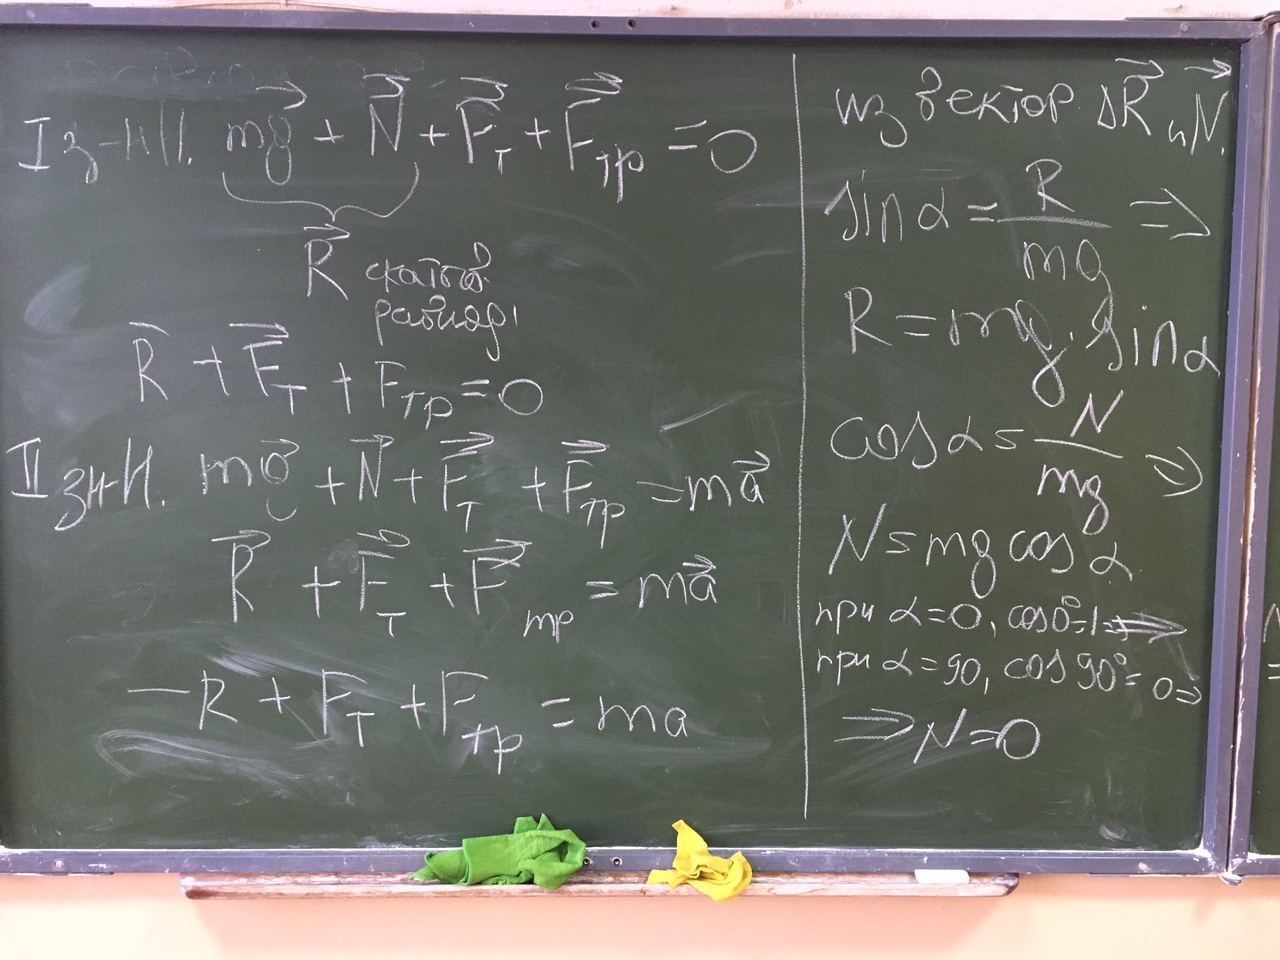 I з-н Н. mg⃗ + N⃗ + F⃗т + F⃗тр = 0
R⃗ скатыв.
равнод.
R⃗ + F⃗т + Fтр = 0
II з-н Н. mg⃗ + N⃗ + F⃗т + F⃗тр = ma⃗
R⃗ + F⃗т + F⃗тр = ma⃗
–R + Fт + Fтр = ma
из вектор. ΔR⃗ и N⃗.
sin α = R/mg ⇒
R = mg · sin α
cos α = N/mg ⇒
N = mg cos α
при α = 0, cos0° = 1 ⇒
при α = 90, cos 90° = 0 ⇒
⇒ N = 0